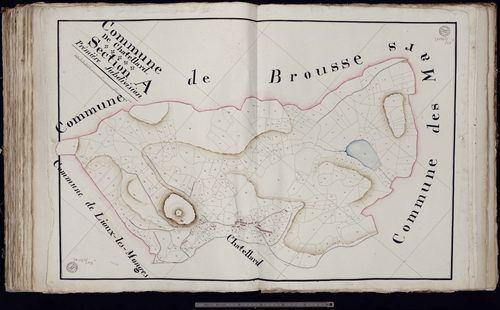 Commune
De Chatellard
Section A
Première Subdivision
Commune de Brousse
Commune des Mars
Commune de Lioux-les-Monges
Chatellard